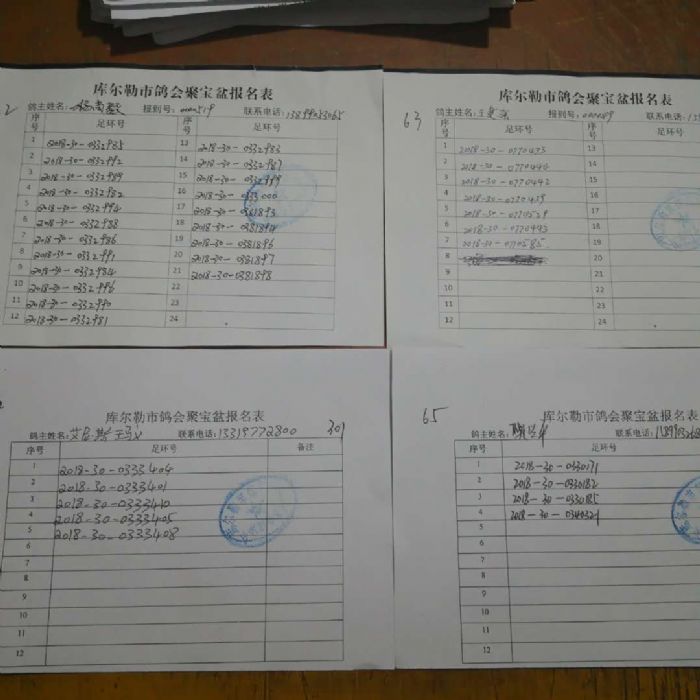 2
库尔勒市鸽会聚宝盆报名表
鸽主姓名: 报到号: 0000519 联系电话: 13899053065
序号 足环号 序号 足环号
1 2018-30-0332985 13 2018-30-0332983
2 2018-30-0332992 14 2018-30-0332987
3 2018-30-0332989 15 2018-30-0332999
4 2018-30-0332982 16 2018-30-0333000
5 2018-30-0332994 17 2018-30-0381893
6 2018-30-0332988 18 2018-30-0381894
7 2018-30-0332986 19 2018-30-0381896
8 2018-30-0332991 20 2018-30-0381897
9 2018-30-0332984 21 2018-30-0381898
10 2018-30-0332996 22
11 2018-30-0332990 23
12 2018-30-0332981 24
63
库尔勒市鸽会聚宝盆报名表
鸽主姓名: 报到号: 联系电话:
序号 足环号
1 2018-30-0770475 13
2 2018-30-0770444 14
3 2018-30-0770442 15
4 2018-30-0770439 16
5 2018-30-0770529 17
6 2018-30-0770443 18
7 2018-30-0770585 19
8 20
9 21
10 22
11 23
12 24
库尔勒市鸽会聚宝盆报名表
鸽主姓名: 联系电话: 13319772800 301
序号 足环号 备注
1 2018-30-0333404
2 2018-30-0333401
3 2018-30-0333410
4 2018-30-0333405
5 2018-30-0333408
6
7
8
9
10
11
12
65
库尔勒市鸽会聚宝盆报名表
鸽主姓名: 联系电话:
序号 足环号
1 2018-30-0330171
2 2018-30-0330182
3 2018-30-0330185
4 2018-30-0340321
5
6
7
8
9
10
11
12